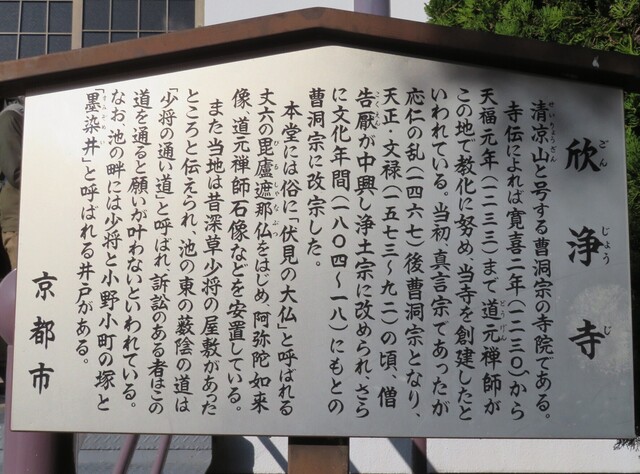 欣浄寺
ごんじょうじ
清凉山と号する曹洞宗の寺院である。
せいりょうざん
寺伝によれば寛喜二年（一二三〇）から
天福元年（一二三三）まで道元禅師が
どうげん
この地で教化に努め、当寺を創建したと
いわれている。当初、真言宗であったが
応仁の乱（一四六七）後曹洞宗となり、
天正・文禄（一五七三～九二）の頃、僧
告厭が中興し浄土宗に改められ、さら
に文化年間（一八〇四～一八）にもとの
曹洞宗に改宗した。
本堂には俗に「伏見の大仏」と呼ばれる
丈六の毘盧遮那仏をはじめ、阿弥陀如来
びるしゃなぶつ
像、道元禅師石像などを安置している。
また当地は昔深草少将の屋敷があった
ところと伝えられ、池の東の薮陰の道は
「少将の通い道」と呼ばれ、訴訟のある者はこの
道を通ると願いが叶わないといわれている。
なお、池の畔には少将と小野小町の塚と
「墨染井」と呼ばれる井戸がある。
すみぞめい
京都市